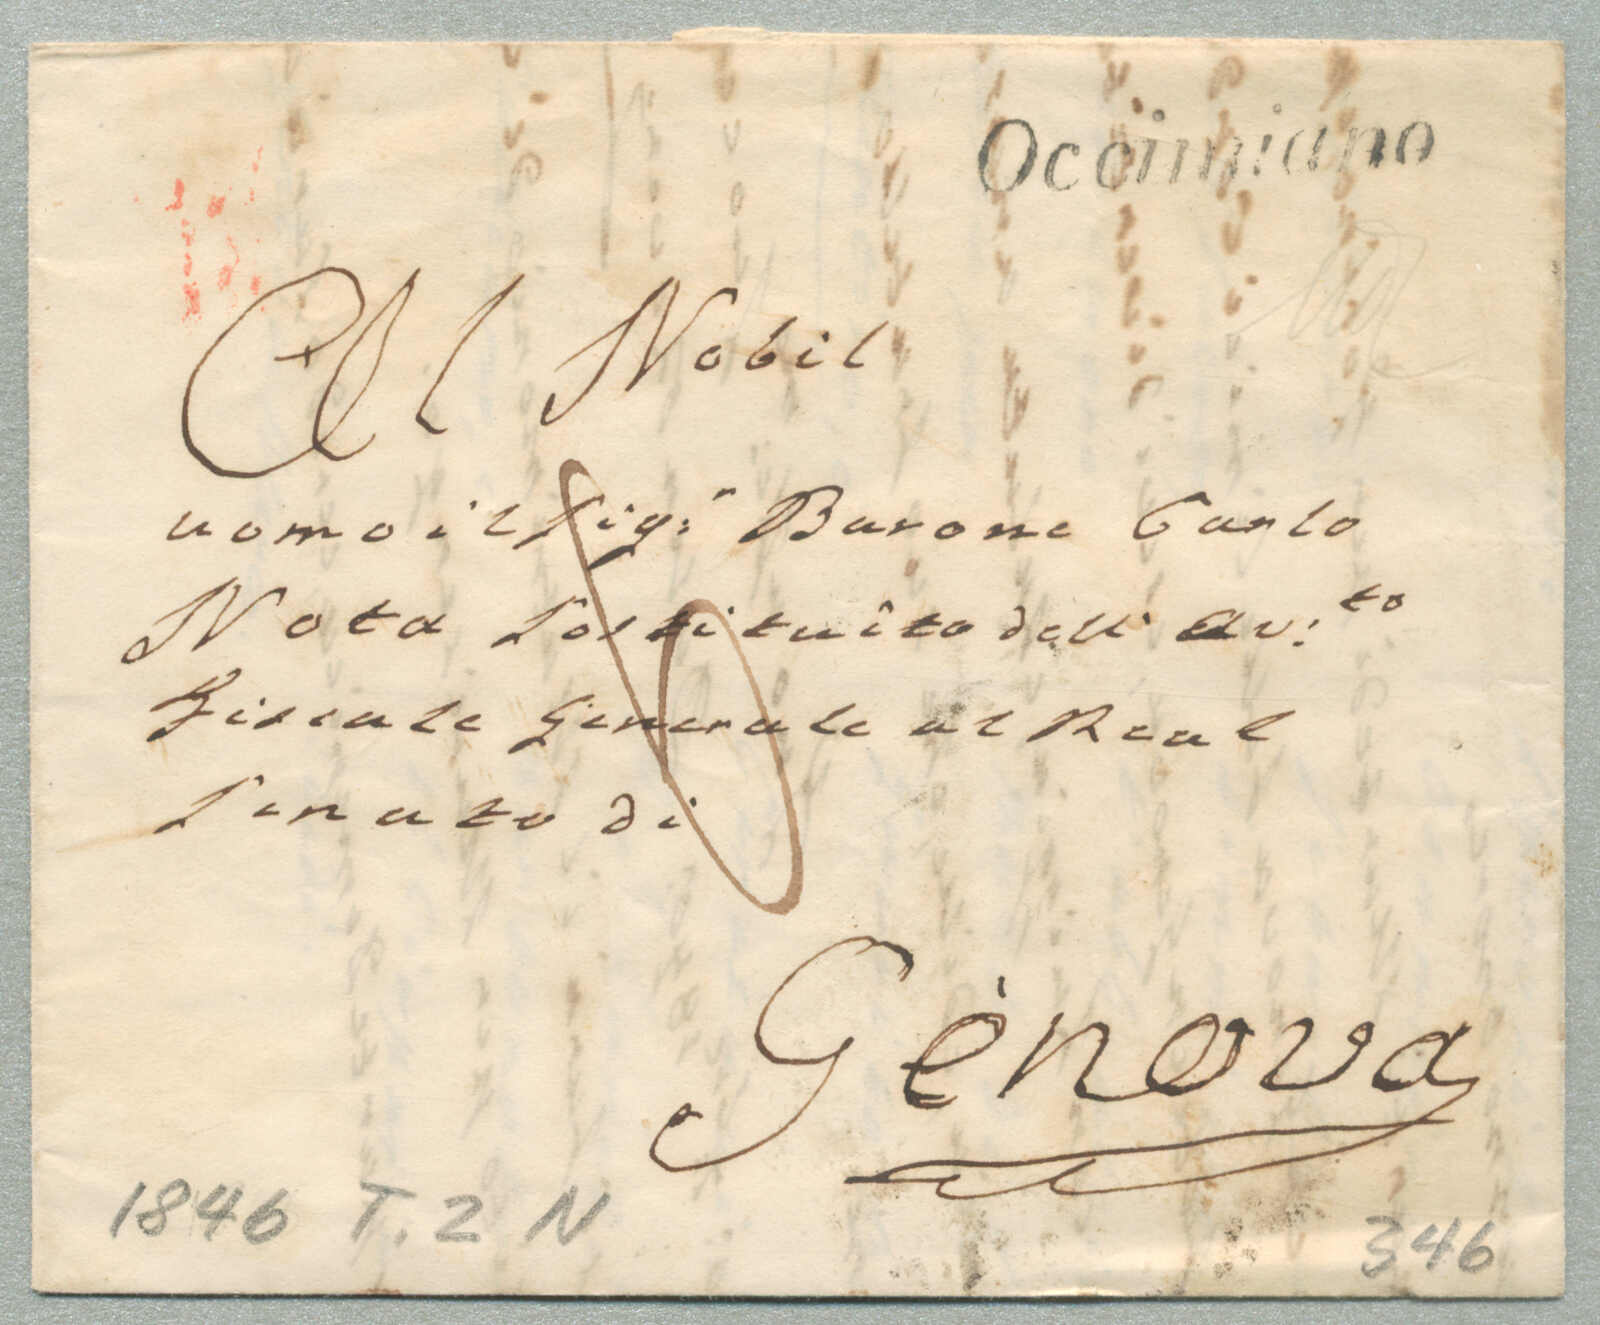 Occimiano
Al Nobil
uomo il Sig.r Barone Carlo
Nota Sostituito dell' Av.to
Fiscale Generale al Real
Senato di
Genova
1846 T. 2 N
346